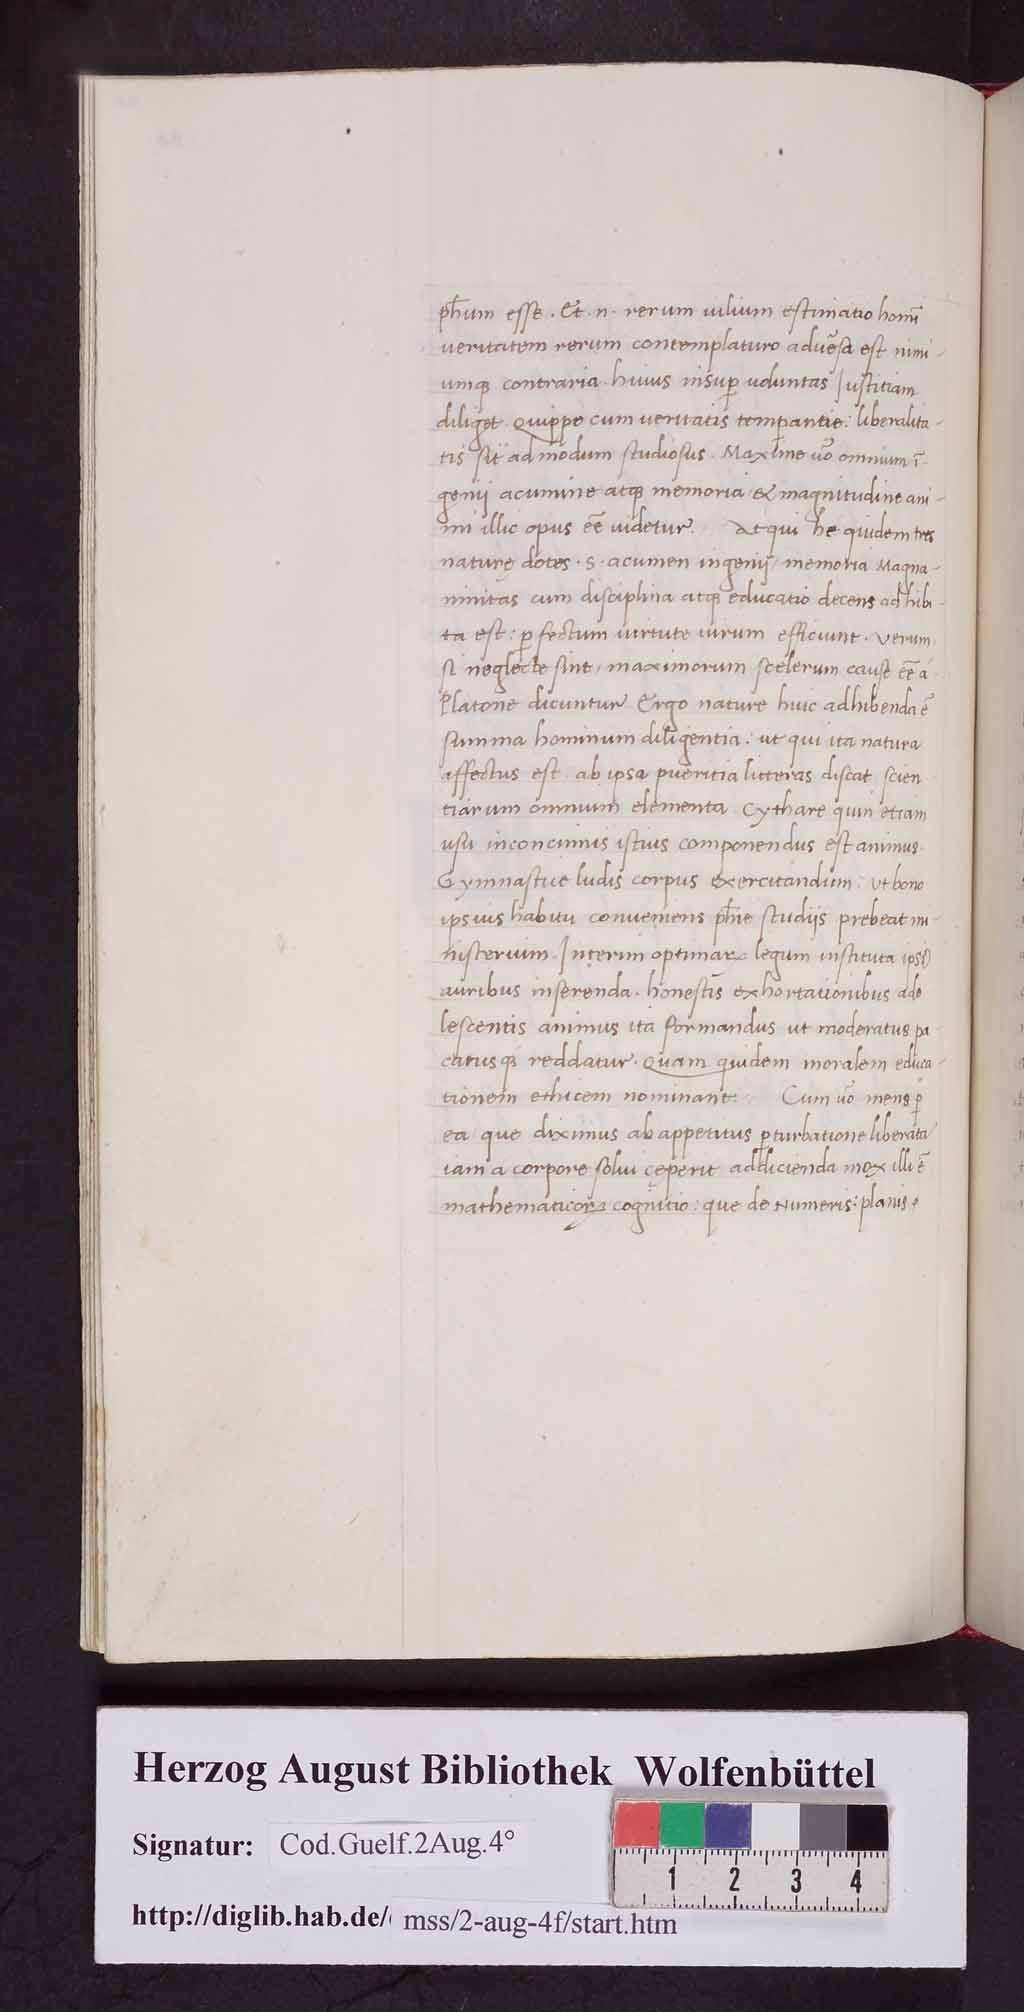 ph̅um esse. Et .n. rerum uilium estimatio homi̅
ueritatem rerum contemplaturo adue̅sa est nimi-
umq; contraria. huius insup̲ uoluntas Iustitiam
diliget. Quippe cum ueritatis temp̲antie: liberalita-
tis sit admodum studiosus. Maxime uo̅ omnium i̅-
genij acumine atq; memoria & magnitudine ani-
mi illic opus ee̅ uidetur. Atqui he quidem tres
naturę dotes .S. acumen ingenij/ memoria Magna-
nimitas cum disciplina atq; educatio decens adhibi-
ta est: p̲fectum uirtute uirum efficiunt. Verum
si neglecte sint, maximorum scelerum cause ee̅ a
Platone dicuntur. Ergo nature huic adhibenda e̅
summa hominum diligentia: ut qui ita natura
affectus est. ab ipsa pueritia litteras discat scien
tiarum omnium elementa. Cythare quin etiam
usu inconcinnis istius componendus est animus.
Gymnastice ludis corpus exercitandum: ut bono
ipsius habitu conueniens ph̅ie studijs prebeat mi-
nisterium. Interim optimaꝝ legum instituta ipsiꝰ
auribus inserenda. honestis̅ exhortationibus ado
lescentis animus ita formandus ut moderatus pa-
catusq; reddatur. Quam quidem moralem educa-
tionem ethicem nominant: Cum uo̅ mens p̲
ea que diximus ab appetitus p̲turbatione liberata
iam a corpore solui cęperit addicienda mox illi e̅
mathematicoꝝ cognitio: que de Numeris: planis.
Herzog August Bibliothek Wolfenbüttel
Signatur: Cod.Guelf.2Aug.4°
http://diglib.hab.de/ mss/2-aug-4f/start.htm
1 2 3 4